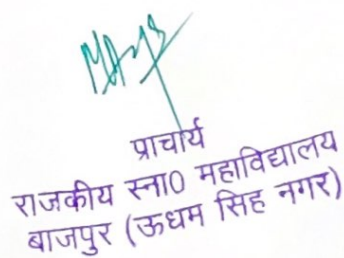 प्राचार्य
राजकीय स्ना0 महाविद्यालय
बाजपुर (ऊधम सिंह नगर)